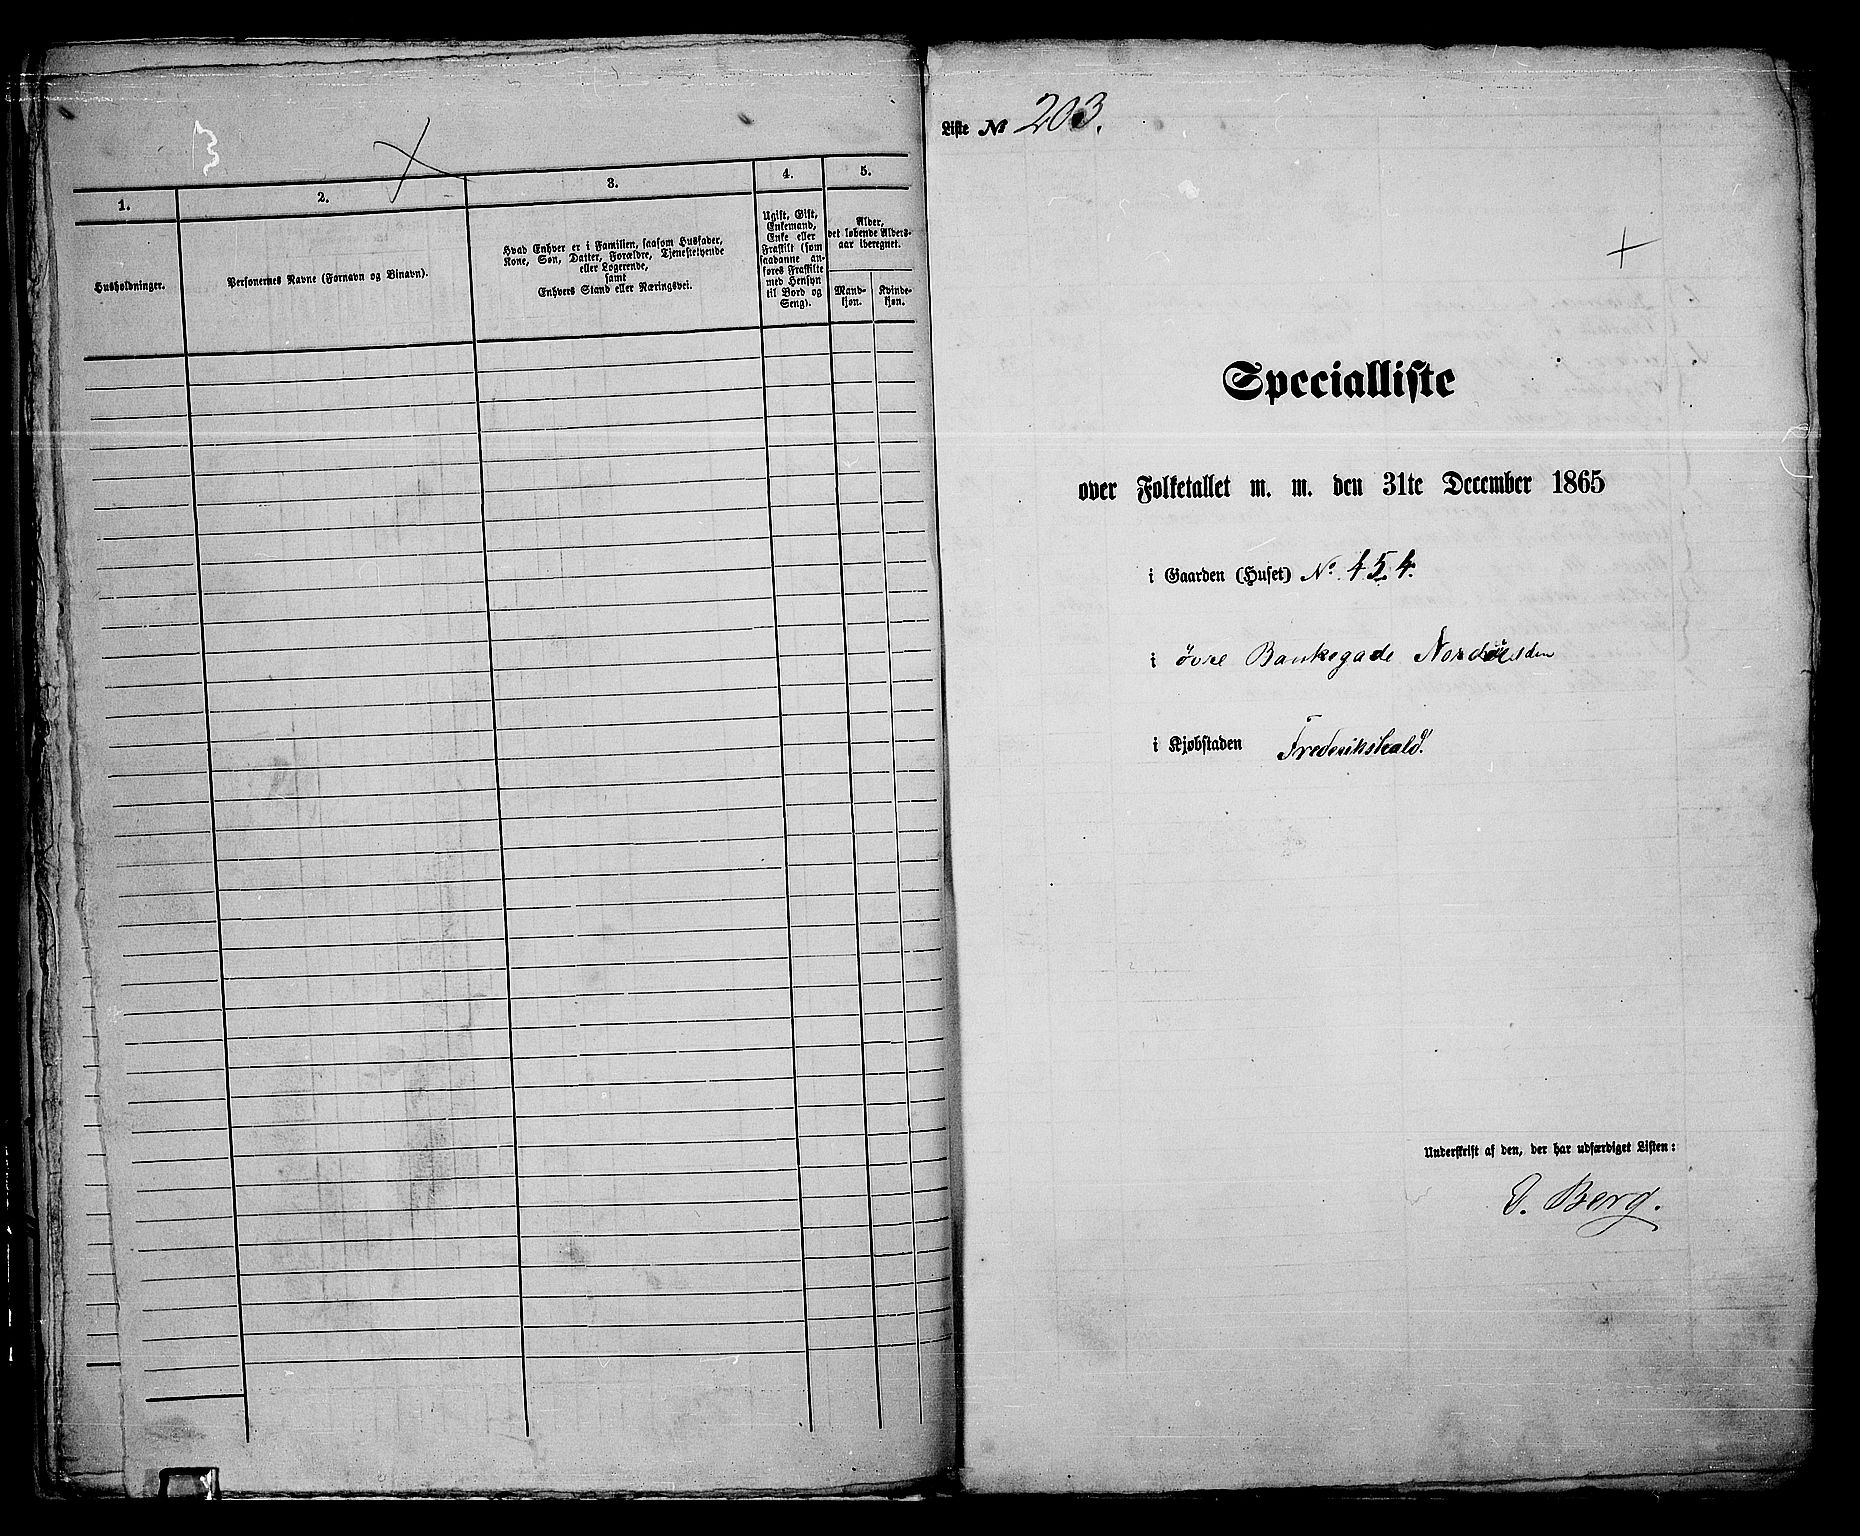 B
1.
2.
3.
4.
5.
Husholdninger.
Personernes Navne (Fornavn og Binavn).
Hvad Enhver er i Familien, saasom Husfader,
Kone, Søn, Datter, Forældre, Tjenestetyende
eller Logerende,
samt
Enhvers Stand eller Næringsvei.
Ugift, Gift,
Enkemand,
Enke eller
Fraskilt (som
saadanne an-
føres Fraskilte
med Hensyn
til Bord og
Seng).
Alder,
det løbende Alders-
aar iberegnet.
Mand-
kjøn.
Kvinde-
kjøn.
Liste № 203.
Specialliste
over Folketallet m. m. den 31te December 1865
i Gaarden (Huset) No. 454.
i øvre Bankegade
i Kjøbstaden Frederikshald.
Underskrift af den, der har udfærdiget Listen:
Berg.